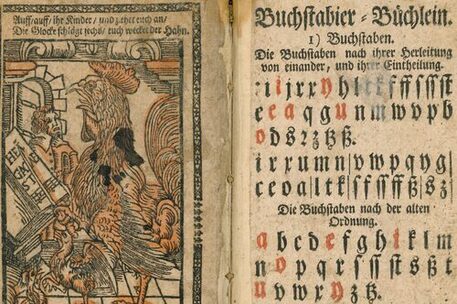 Auff/auff/ ihr Kinder/ und ziehet euch an/
Die Glocke schlägt sechs/ euch wecket der Hahn.
Buchstabier-Büchlein.
1) Buchstaben.
Die Buchstaben nach ihrer Herleitung
von einander, und ihrer Eintheilung.
r i j r x y h l t k f ff ſ ſſ ſt
c e a q g u n m w v p b
o d s r 2 z tz ß.
i r x u m n v w p q y g
c e o a l t k ſ f ſſ ff ß s z
Die Buchstaben nach der alten
Ordnung.
a b c d e f g h i k l m
n o p q r ſ ſſ ſt s ß t
u v w x y z tz.